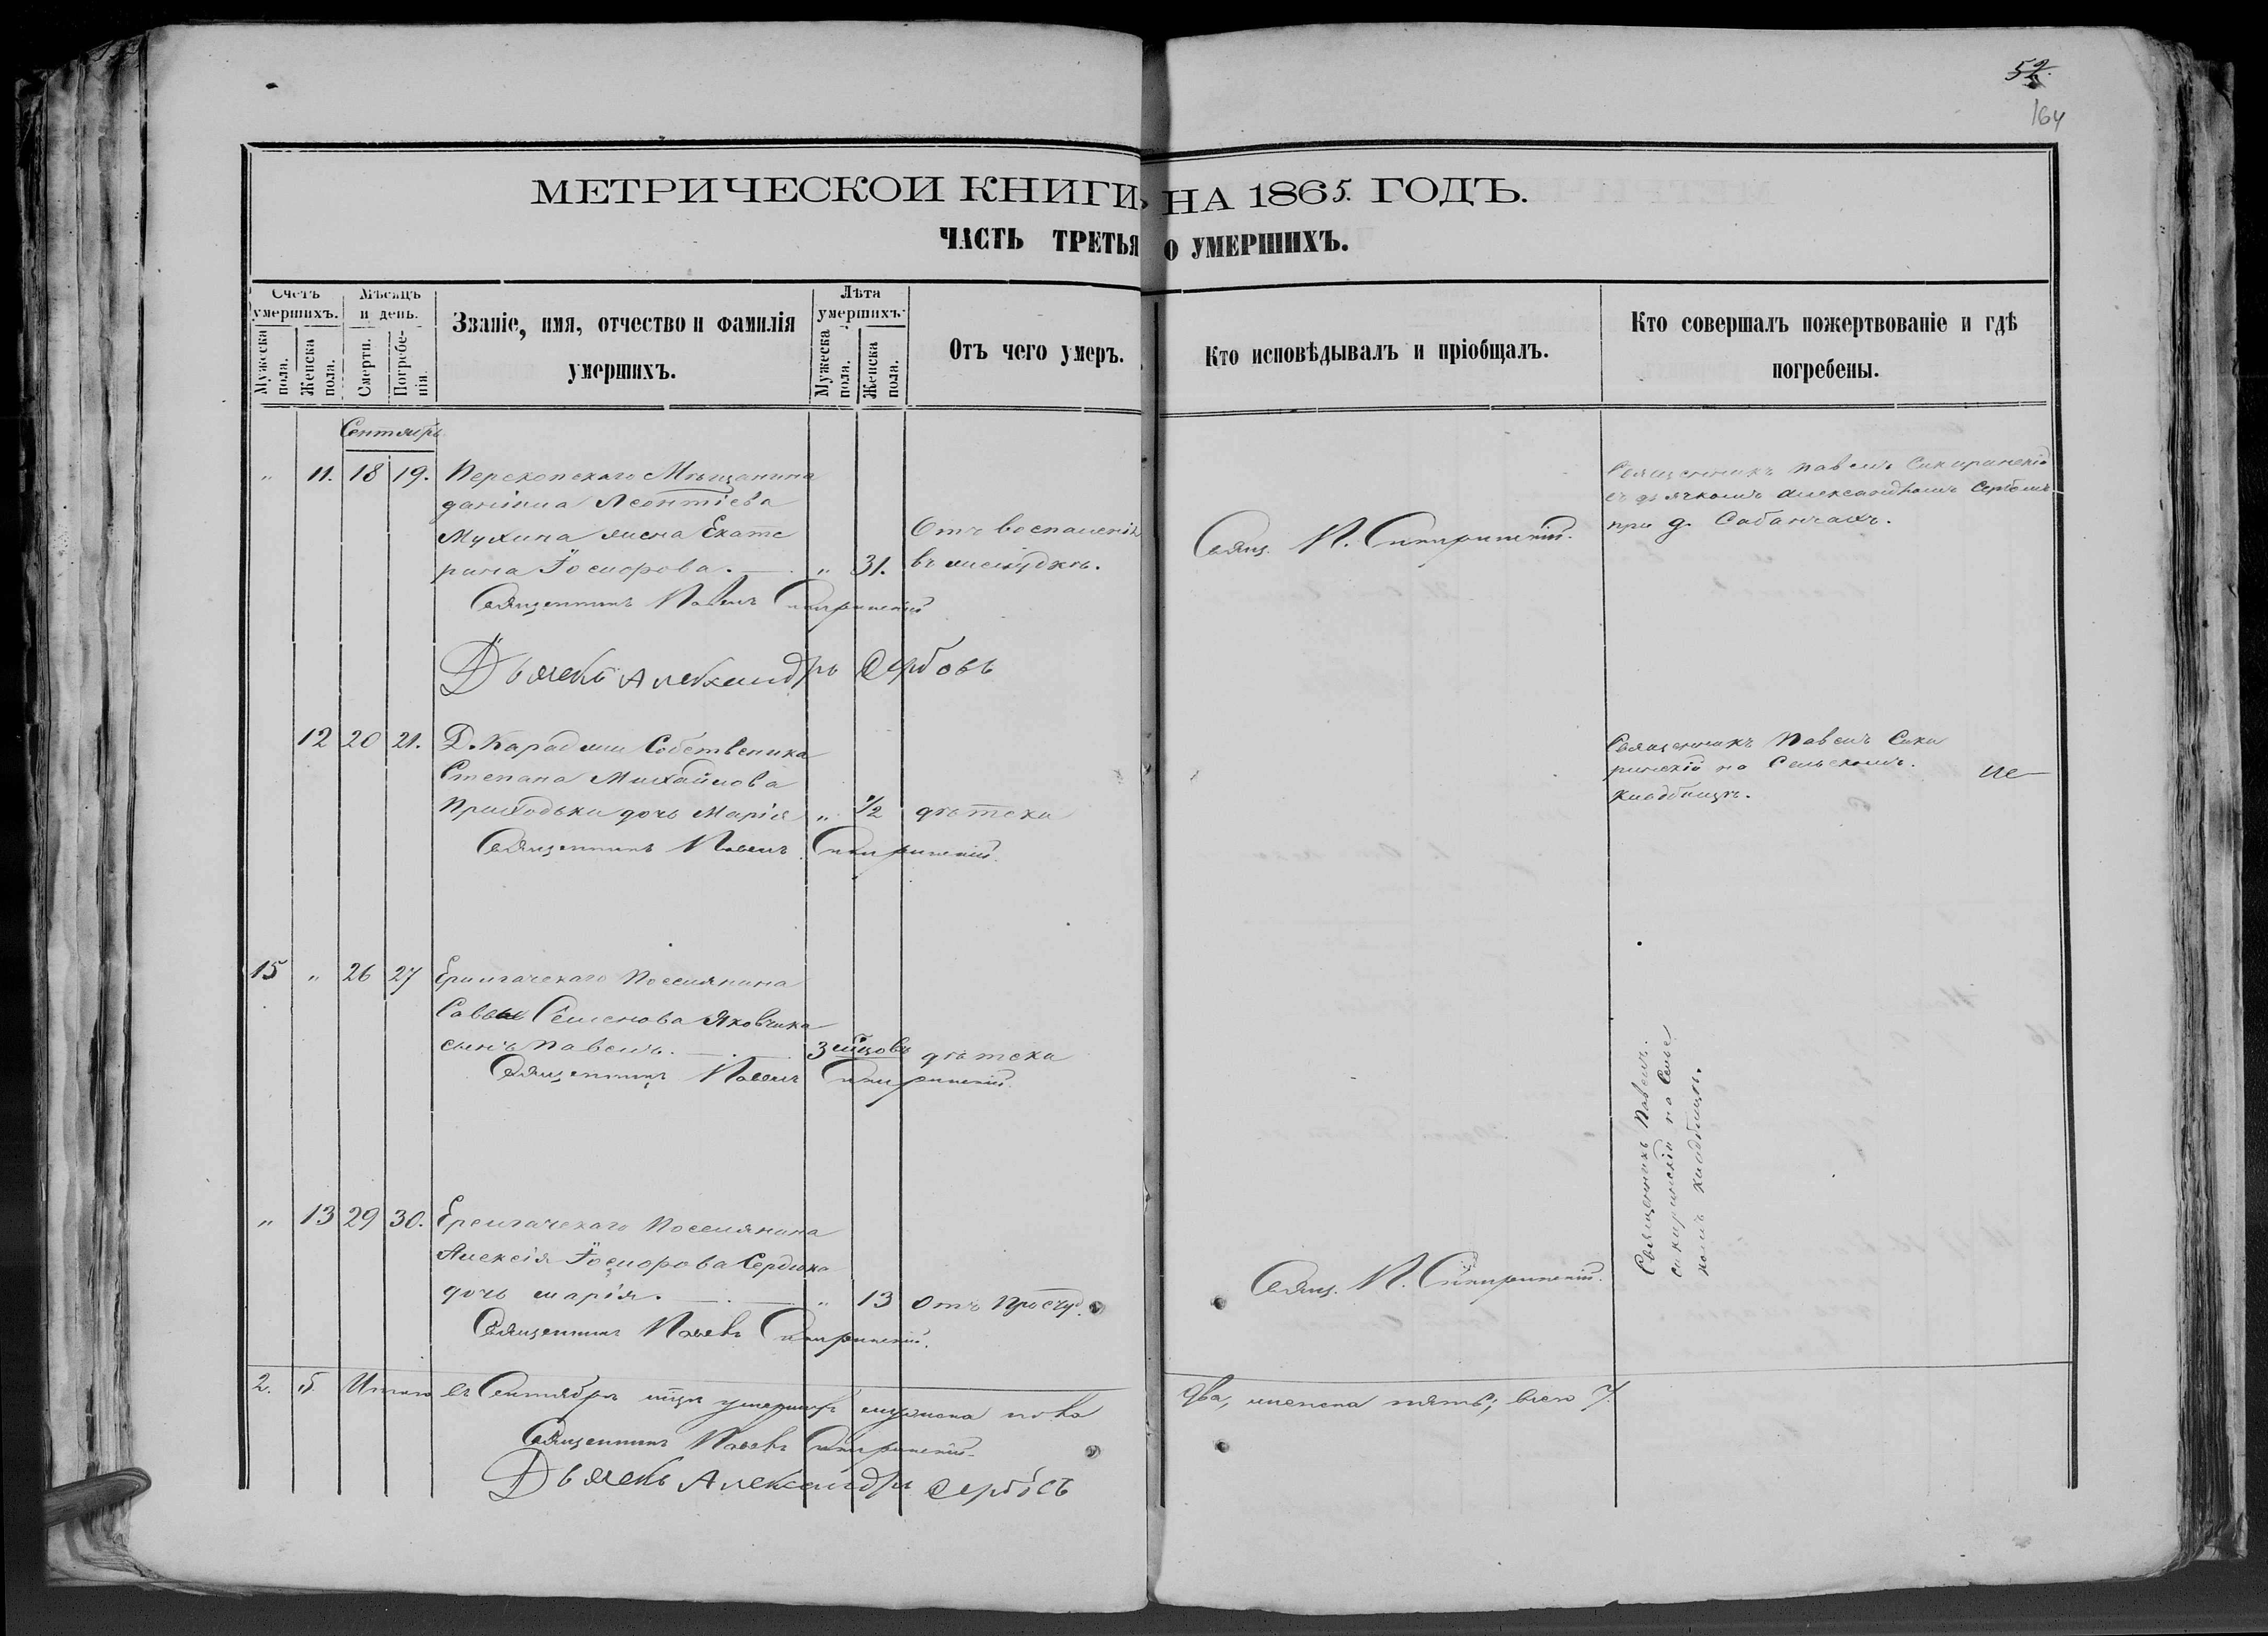 52.
164
МЕТРИЧЕСКОЙ КНИГИ, НА 1865. ГОДЪ.
ЧАСТЬ ТРЕТЬЯ О УМЕРШИХЪ.
Счетъ умершихъ.
Мужеска пола.
Женска пола.
Мѣсяцъ и день.
Смерти.
Погребенія.
Званіе, имя, отчество и фамилія умершихъ.
Лѣта умершихъ.
Мужеска пола.
Женска пола.
Отъ чего умеръ.
Кто исповѣдывалъ и пріобщалъ.
Кто совершалъ пожертвованіе и гдѣ погребены.
Сентябрь
" 11. 18 19. Перекопскаго Мѣщанина
Даніила Леонтіева
Мухина жена Екате
рина Ѳеодорова. " 31.
Отъ воспаленія
въ желудкѣ.
Свящ. П. Сикиринскій.
Священникъ Павелъ Сикиринскій
съ дьячкомъ Александромъ Сербовъ
при д. Сабанчахъ.
Священникъ Павелъ Сикиринскій
Дьячекъ Александръ Сербовъ
12 20 21. Д. Караджи Собственика
Степана Михайлова
Приходьки дочь Марія " 1/2 дѣтска
Священникъ Павелъ Сикиринскій.
Священникъ Павелъ Сики
ринскій на Сельскомъ.
кладбищѣ.
15 " 26 27 Ерилгачскаго Поселянина
Саввы Семенова Яковчика
сынъ Павелъ. 3 мѣсцовъ дѣтска
Священникъ Павелъ Сикиринскій.
Священникъ Павелъ.
Сикиринскій на Селье
комъ кладбищѣ.
" 13 29 30. Ерелгачскаго Поселянина
Алексія Ѳеодорова Сердюка
дочь Марія. " 13 отъ Простуд.
Свящ. П. Сикиринскій.
Священникъ Павелъ Сикиринскій.
2. 5. Итого въ Сентябрѣ мцѣ умершихъ мужеска пола два, женска пять; всего 7.
Священникъ Павелъ Сикиринскій.
Дьячекъ Александръ Сербовъ